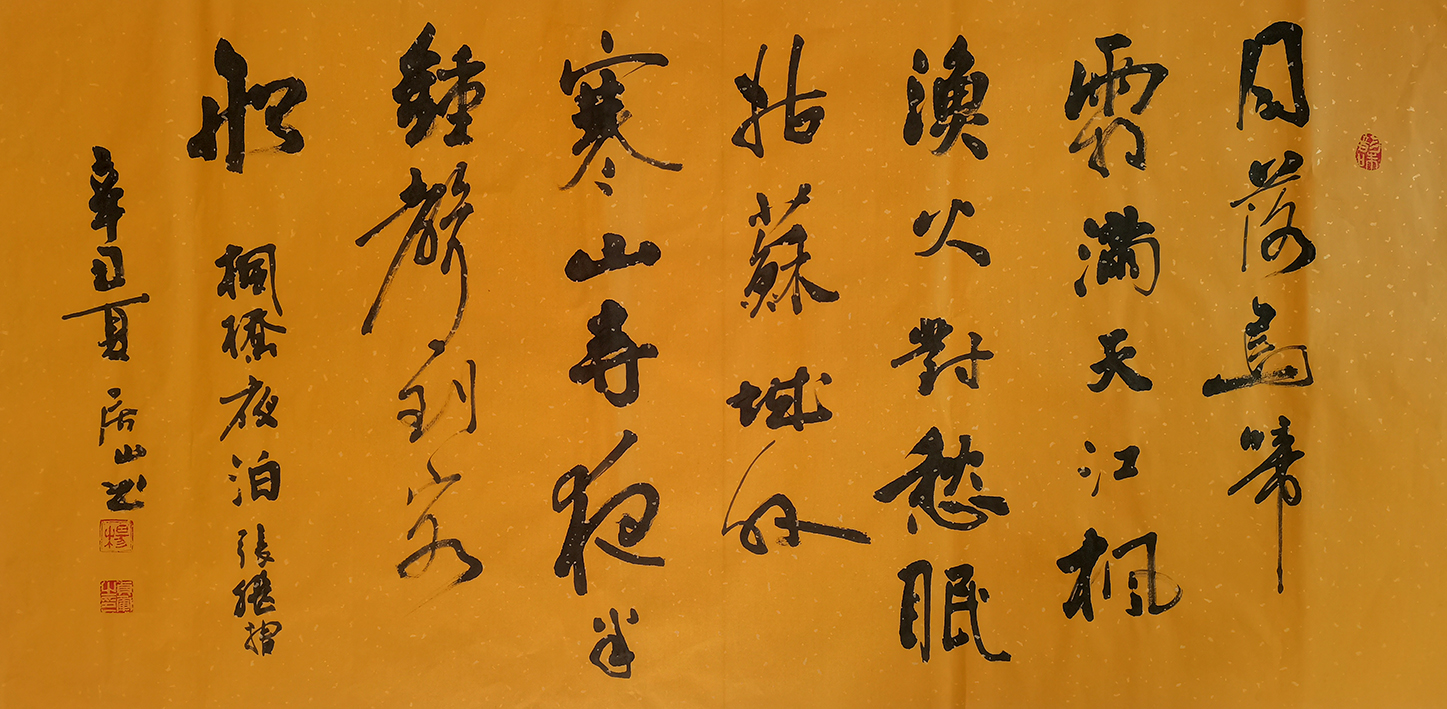 月落烏啼
霜滿天江楓
漁火對愁眠
姑蘇城外
寒山寺夜半
鍾聲到客
船
楓橋夜泊 張繼
辛丑夏 居山书